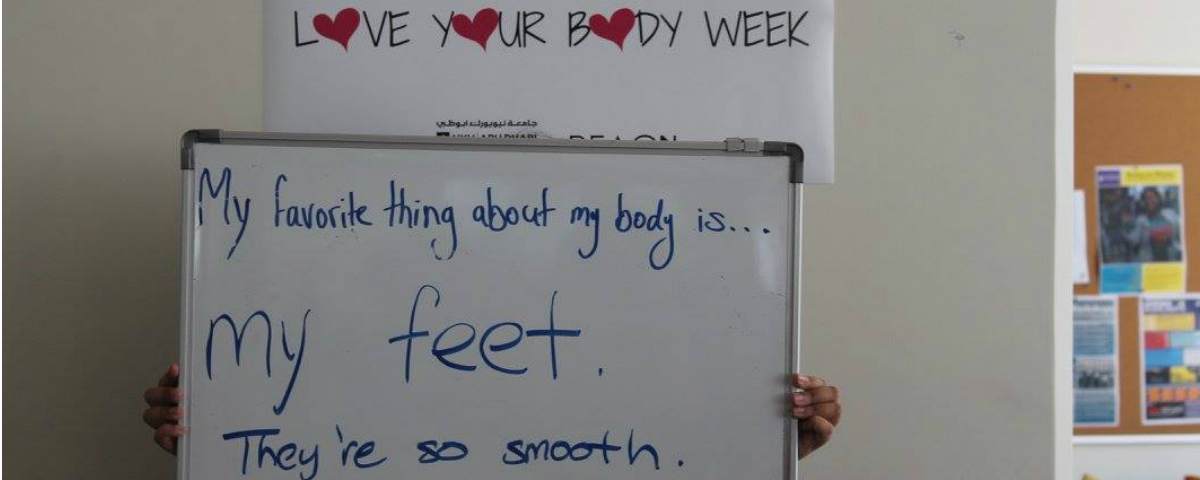 LOVE YOUR BODY WEEK
جامعة نيويورك أبوظبي
My favorite thing about my body is...
my feet.
They're so smooth.